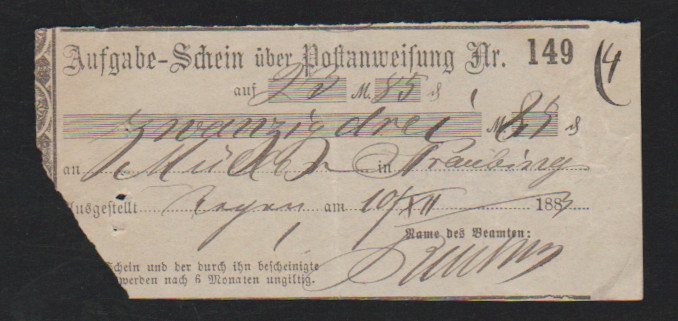 Aufgabe-Schein über Postanweisung Nr. 149 (4
auf 23 M. 85 ₰
zwanzigdrei M. 85 ₰
an Müller in Straubing
Ausgestellt Regen am 10/XII 1883
Name des Beamten:
Schein und der durch ihn bescheinigte
werden nach 6 Monaten ungiltig.